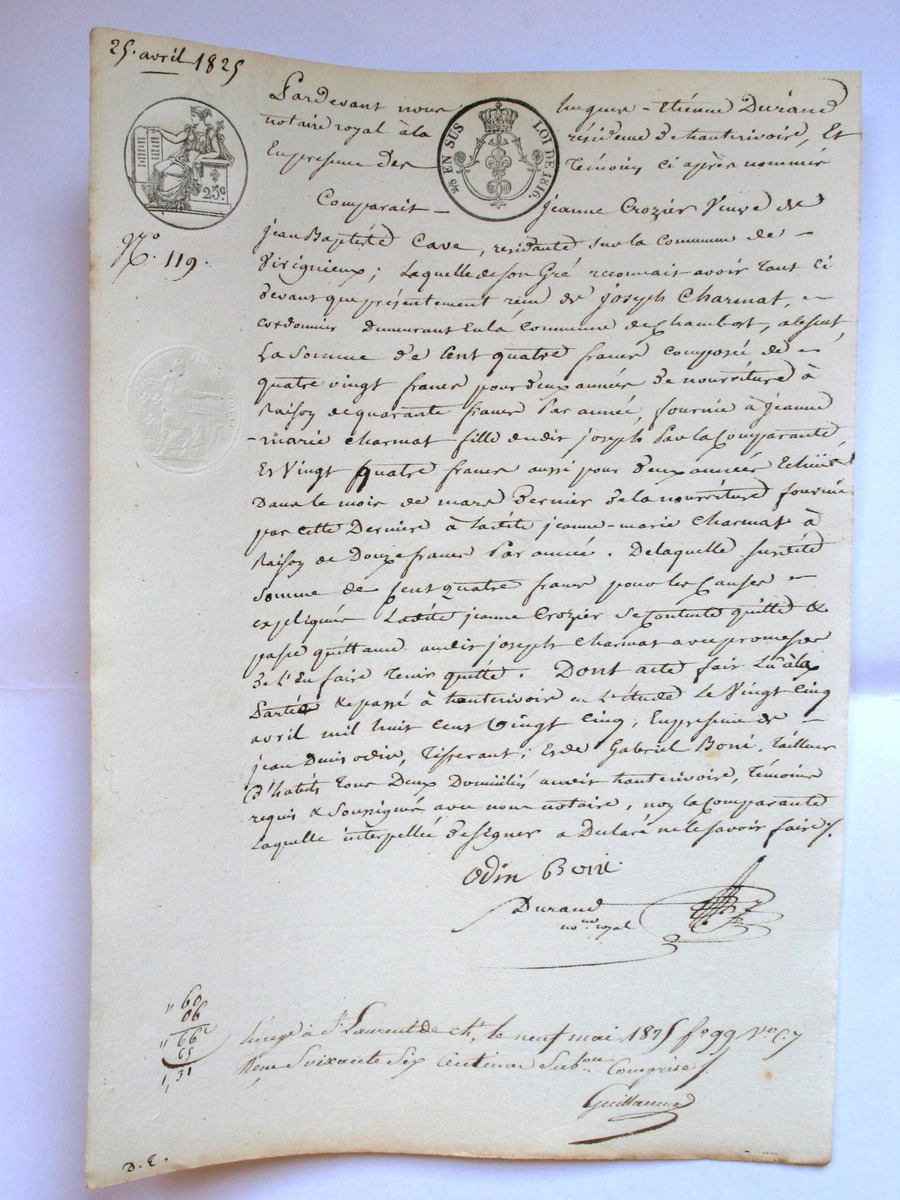 25. avril 1825
Pardevant nous hugues-Etienne Durand
notaire royal à la résidence de hauterivoire, Et
En presence des Témoins ci après nommés
2/10 EN SUS LOI DE 1816.
25c.
N.o 119.
Comparait - Jeanne Crozier Veuve de
Jean Baptiste Cave, residante sur la Commune de -
Virignieux; Laquelle de son Gré reconnait avoir tout ci
devant que présentement reçu de joseph Charmat, -
cordonnier Demeurant En la Commune de Chambost, absent
La Somme de Cent quatre francs composée de -
quatre vingt francs pour deux années de nourriture à
Raison de quarante francs Par année, fournie à Jeanne
-marie Charmat fille dudit joseph Par la Comparante,
Et Vingt quatre francs aussi pour deux années Echues
Dans le mois de mars Dernier de la nourriture fournie
par cette Dernière à ladite jeanne-marie Charmat à
Raison de Douze francs Par année. De laquelle susdite
Somme de Cent quatre francs pour les Causes -
expliquées Ladite jeanne Crozier se Contente quitte &
passe quittance audit joseph Charmat avec promesse
de l'En faire tenir quitte. Dont acte fait Lu à la
Partie & passé à hauterivoir en L'étude Le Vingt Cinq
avril mil huit cent Vingt Cinq, En presence de -
jean Denis odin, Tisserant; Et de Gabriel Boné, Tailleur
D'habits Tous Deux Domiciliés audit hauterivoire, Témoins
requis & Soussignés avec nous notaire, non la Comparante
Laquelle interpellée de signer a Déclaré ne le savoir faire
Odin Boné
Durand
no.re royal
" 60
06
" 66c
65
1,31
Enregé à St Laurent de Ct, le neuf mai 1825 fo 99 Vo C. 7
Reçu Soixante Six Centimes Subon Comprise
Guillaume
D. E.